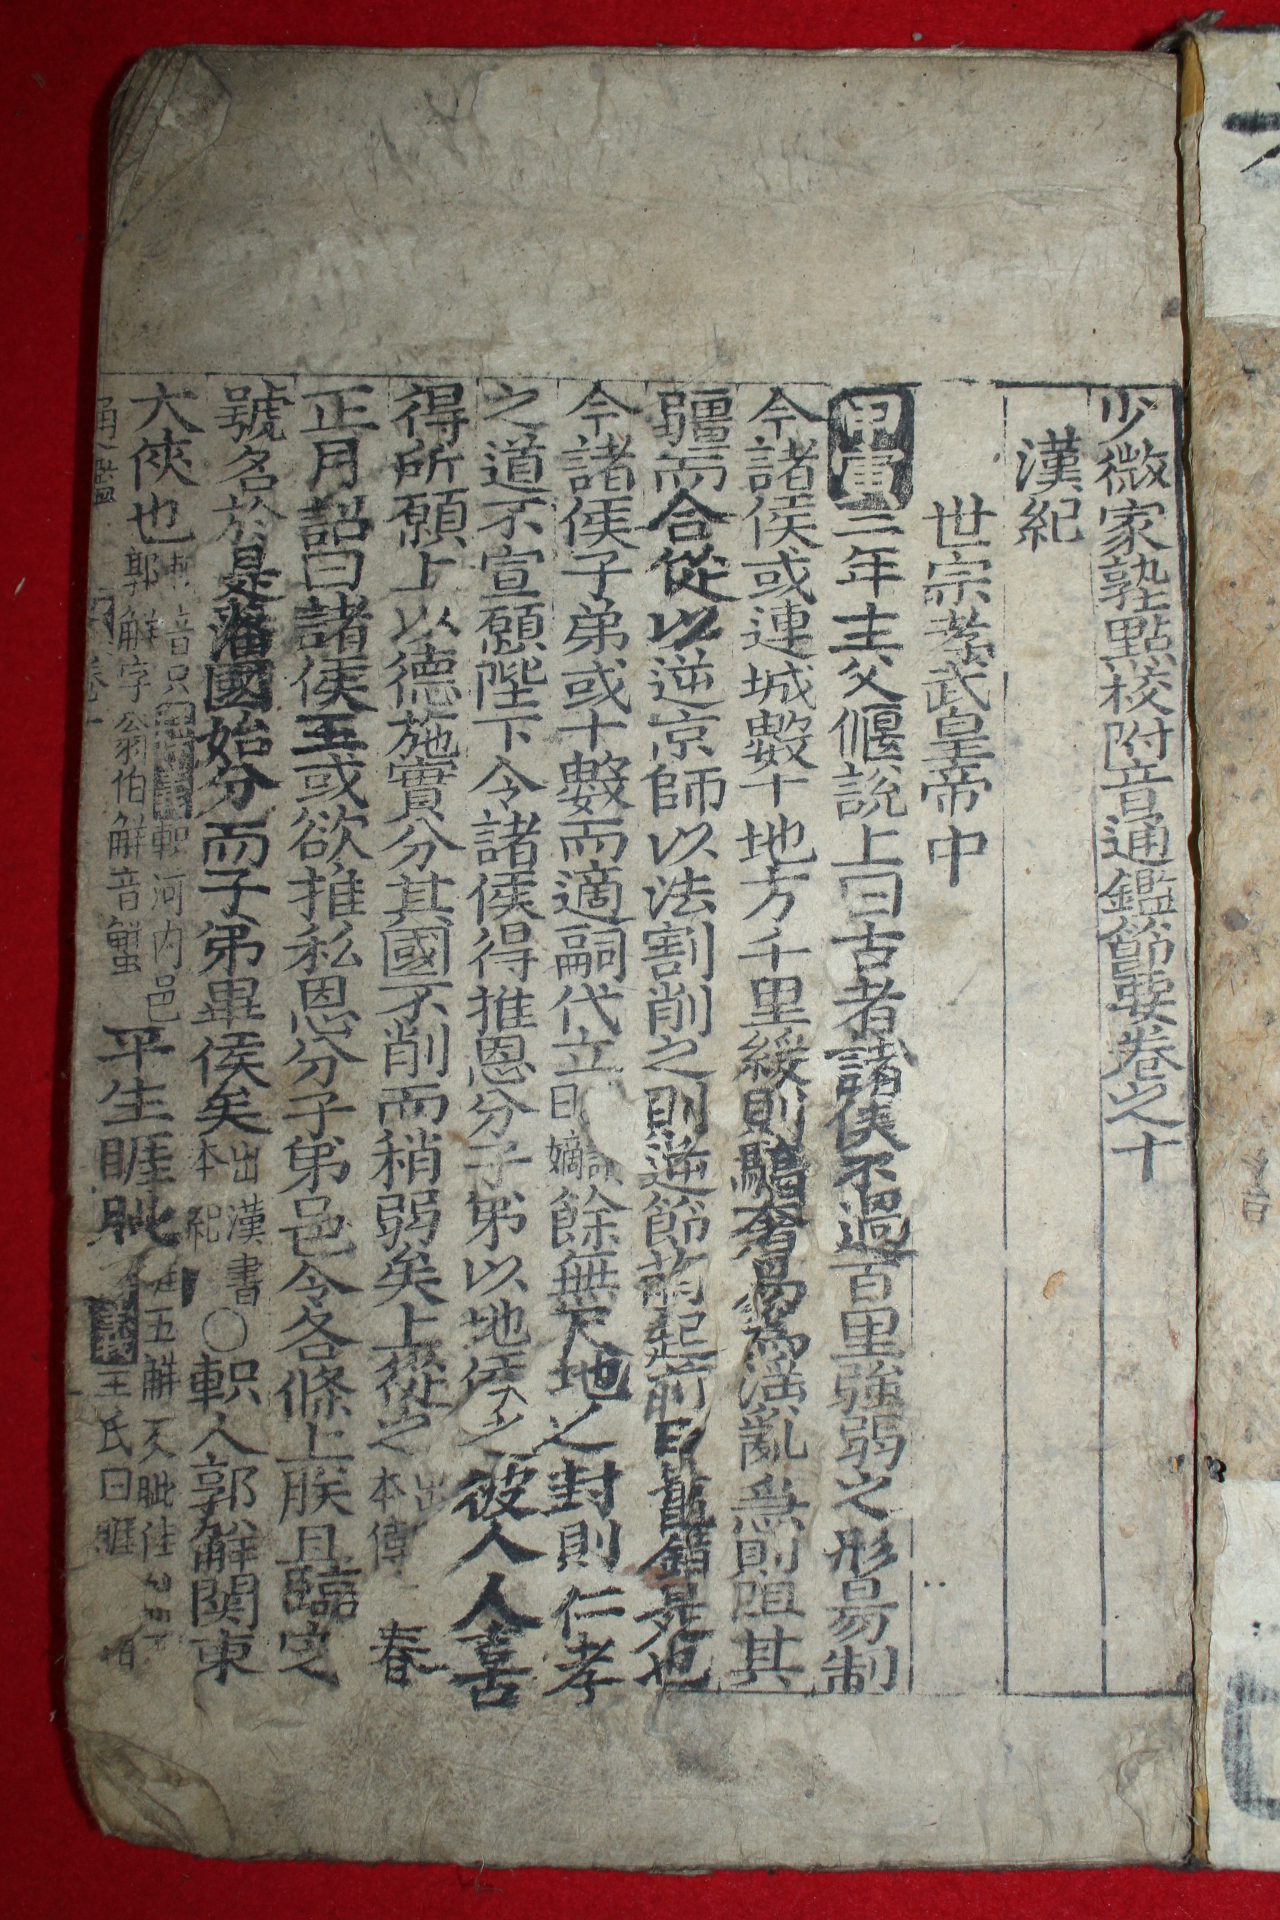 少微家塾點校附音通鑑節要卷之十
漢紀
世宗孝武皇帝中
甲寅二年主父偃說上曰古者諸侯不過百里強弱之形易制
今諸侯或連城數十地方千里緩則驕奢易為淫亂急則阻其
疆而合從以逆京師以法割削之則逆節萌起前日晁錯是也
今諸侯子弟或十數而適嗣代立
曰嫡
餘無尺地之封則仁孝
之道不宣願陛下令諸侯得推恩分子弟以地侯之彼人人喜
得所願上以德施實分其國不削而稍弱矣上從之
出
本傳
春
正月詔曰諸侯王或欲推私恩分子弟邑令各條上朕且臨定
號名於是藩國始分而子弟畢侯矣
出漢書
本紀
〇軹人郭解關東
大俠也
音只
軹河內邑
郭解字翁伯解音蟹
平生睚眦
五懈反眦仕
王氏曰睚